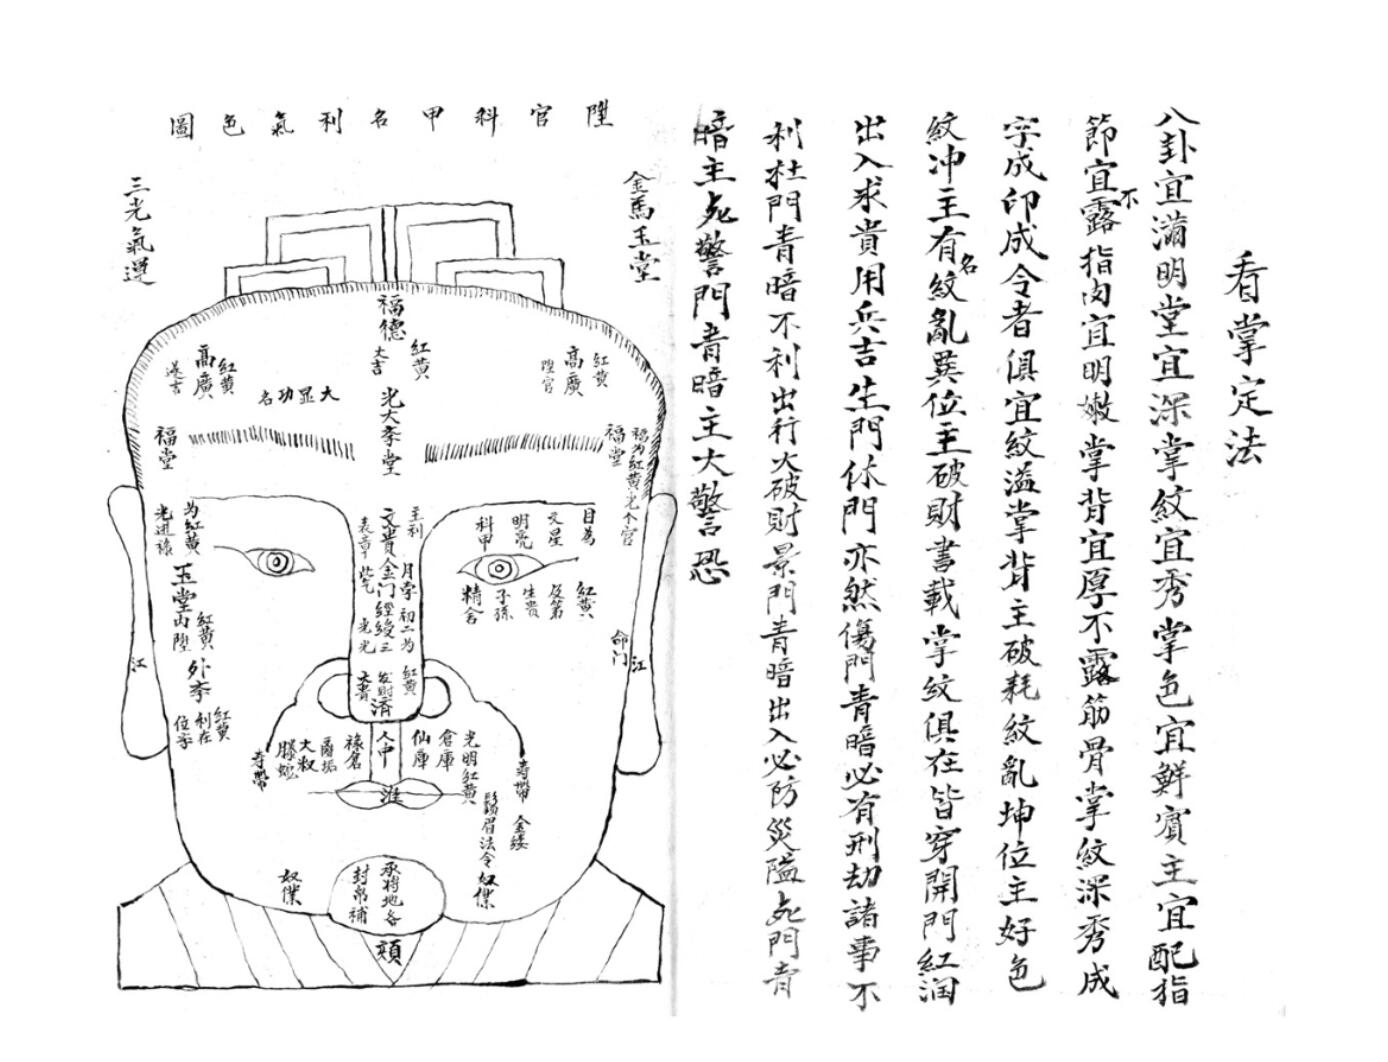 看掌定法
八卦宜滿明堂宜深掌紋宜秀掌色宜鮮賓主宜配指
節宜不露指肉宜明嫩掌背宜厚不露筋骨掌紋深秀成
字成印成令者俱宜紋溢掌背主破耗紋亂坤位主好色
紋冲主有名紋亂巽位主破財書載掌紋俱在皆穿開門紅润
出入求貴用兵吉生門休門亦然傷門青暗必有刑劫諸事不
利杜門青暗不利出行大破財景門青暗出入必防災隘死門青
暗主死警門青暗主大警恐
陞官科甲名利氣色圖
金馬玉堂
三光氣運
福德
紅黄
大吉
高廣
紅黄
陞官
高廣
紅黄
遂吉
大显功名
光大孝堂
福堂
福为紅黄光个官
福堂
为紅黄
光進禄
目為
文星
明亮
科甲
紅黄
及第
生贵
子孫
精舍
主利
文貴
表章
金门
月孛
經綬
初二为
三光
紅黄
發財
大貴
濟
玉堂
丙陞
紅黄
外李
紅黄
利在
命门
江
江
人中
仙庫
倉庫
光明紅黄
禄倉
大殺
騰蛇
寿帶
寿帶
金縷
鬚眉法令
淮
奴僕
奴僕
承將地各
封帛補
頦